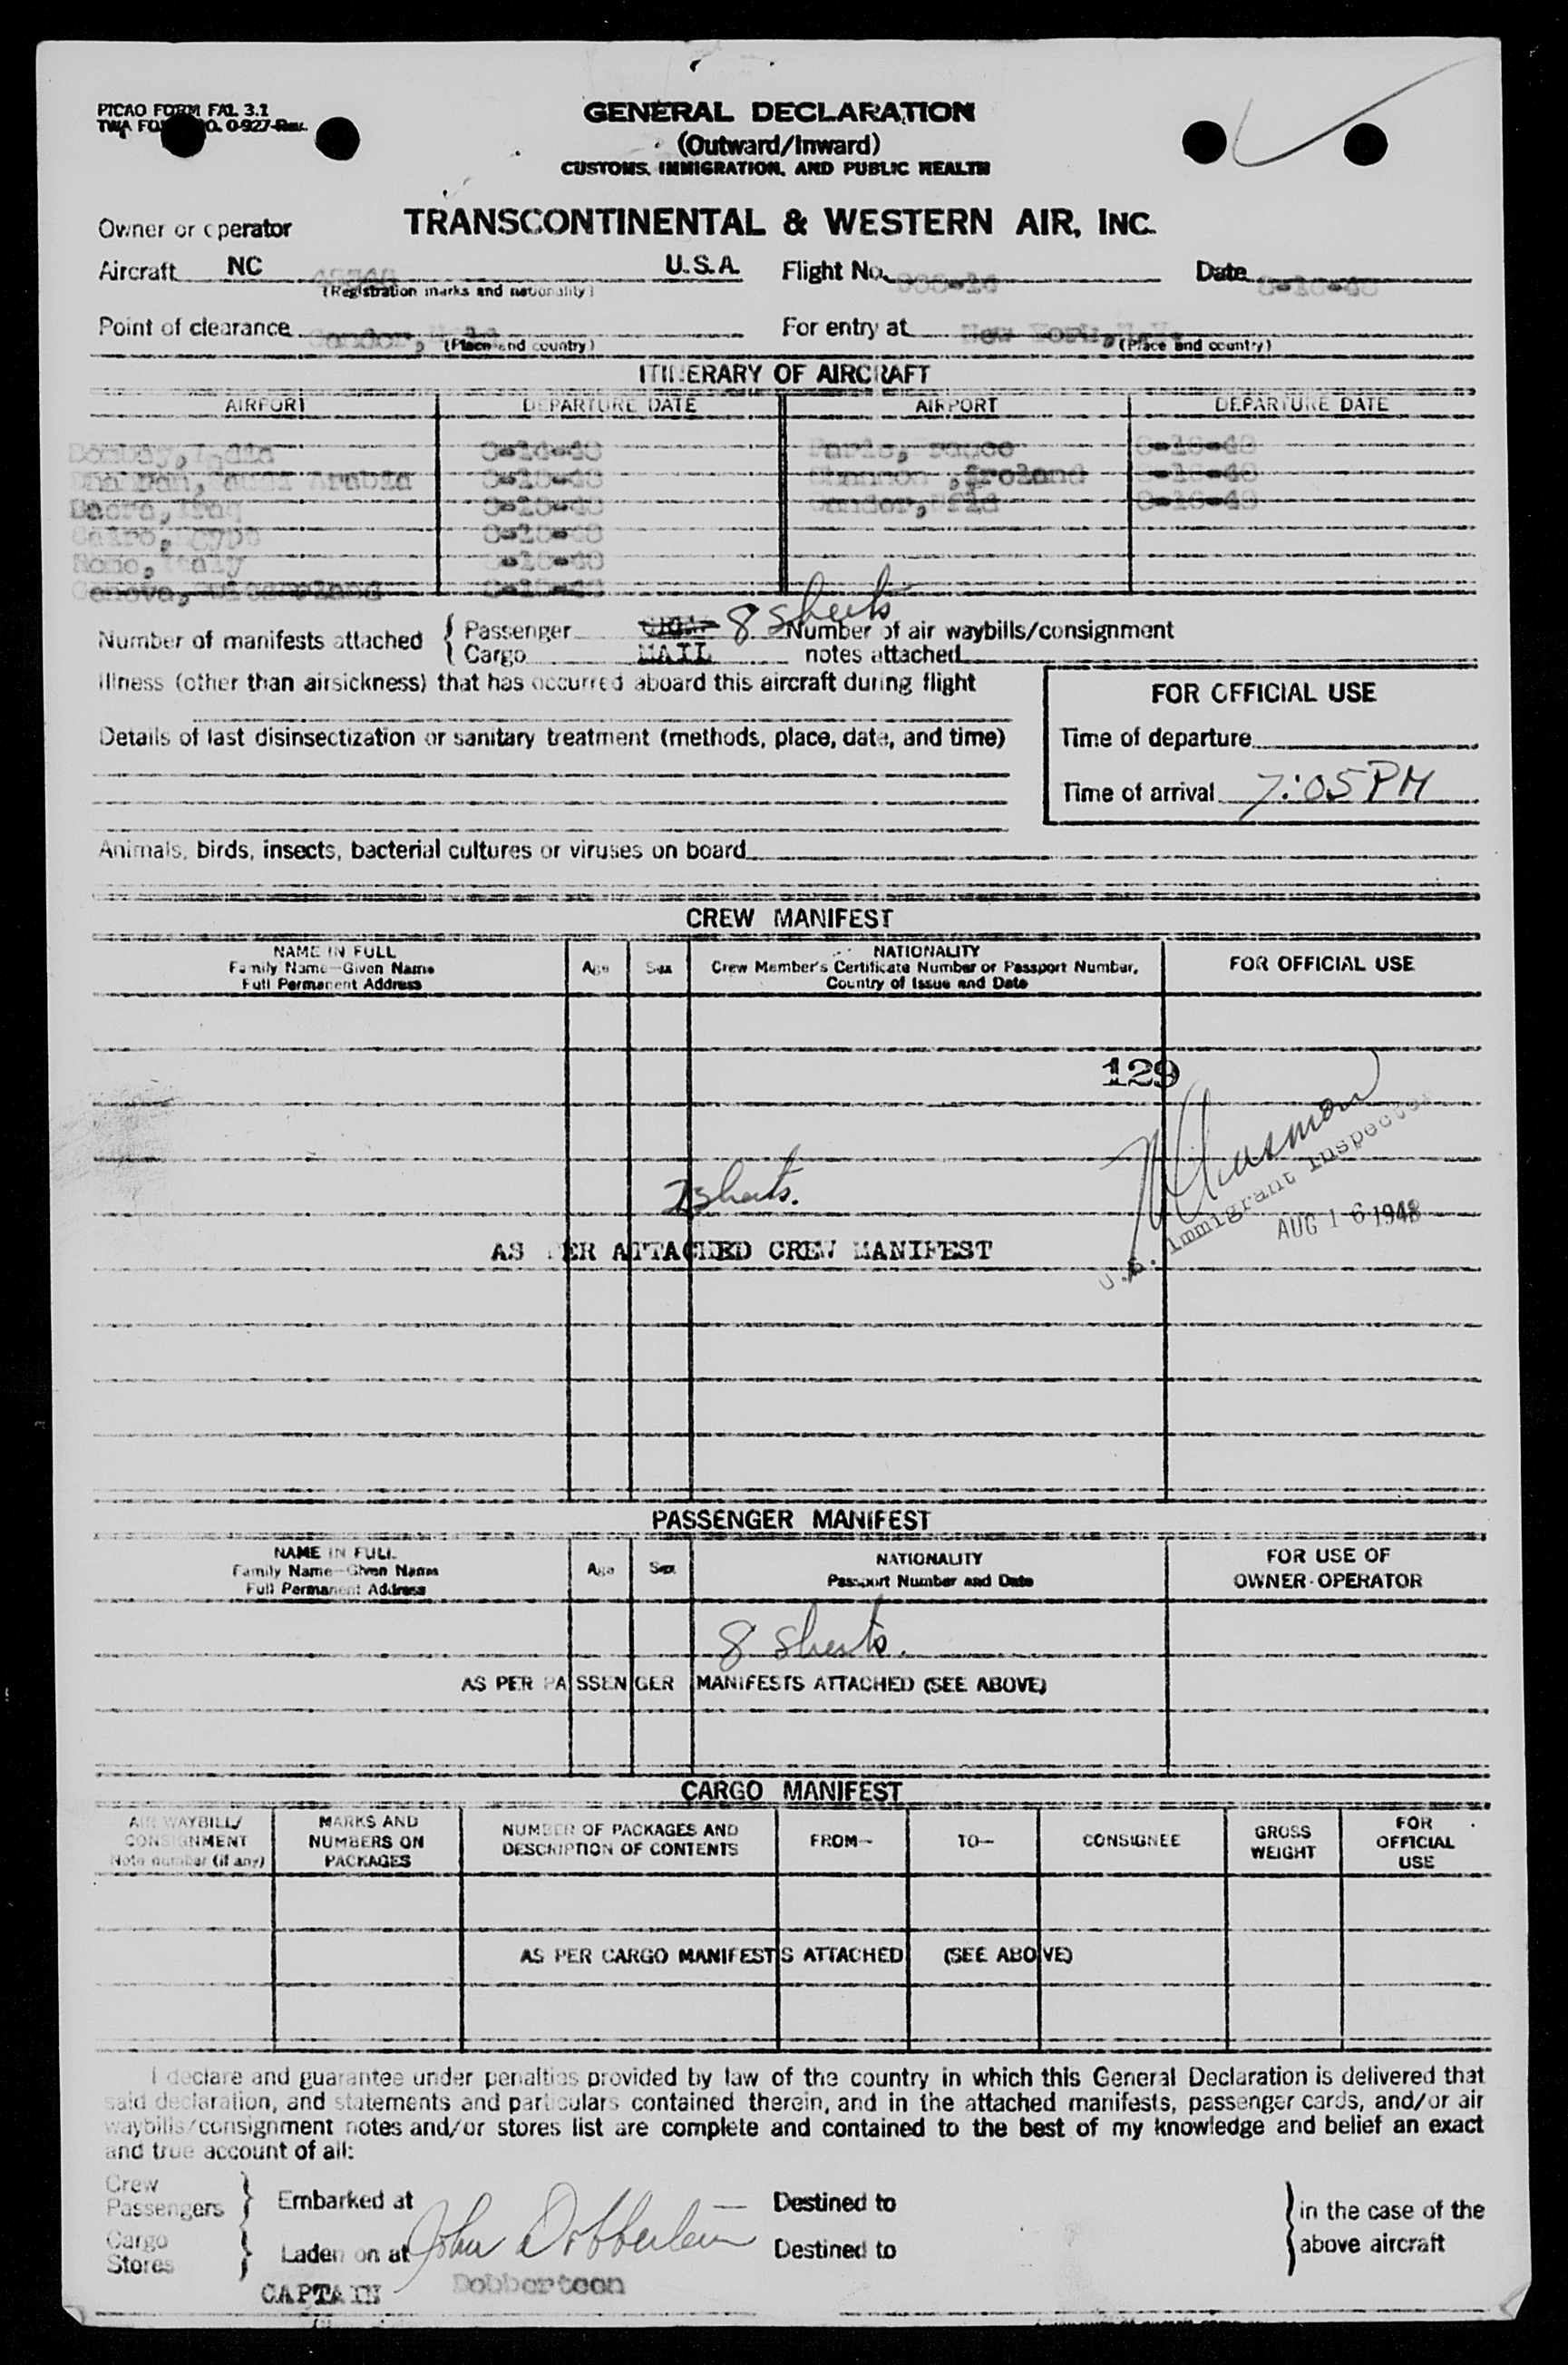 PICAO FORM FAL 3.1
TWA FO O. 0-927-Rev.
GENERAL DECLARATION
(Outward/Inward)
CUSTOMS, IMMIGRATION, AND PUBLIC HEALTH
Owner or operator TRANSCONTINENTAL & WESTERN AIR, INC.
Aircraft NC U.S.A. Flight No. Date
(Registration marks and nationality)
Point of clearance For entry at New York,
(Place and country) (Place and country)
ITINERARY OF AIRCRAFT
AIRPORT DEPARTURE DATE AIRPORT DEPARTURE DATE
Bombay, India 8-14-48 Paris, 8-16-48
Arabia Ireland
Cairo,
Rome, Italy
Geneva,
8 sheets
Number of manifests attached { Passenger Number of air waybills/consignment
Cargo MAIL notes attached
Illness (other than airsickness) that has occurred aboard this aircraft during flight
FOR OFFICIAL USE
Details of last disinsectization or sanitary treatment (methods, place, date, and time)
Time of departure
Time of arrival 7:05 PM
Animals, birds, insects, bacterial cultures or viruses on board
CREW MANIFEST
NAME IN FULL
Family Name—Given Name
Full Permanent Address
Age Sex
NATIONALITY
Crew Member's Certificate Number or Passport Number,
Country of Issue and Date
FOR OFFICIAL USE
129
U.S. Immigrant Inspector
AUG 16 1948
sheets.
AS PER ATTACHED CREW MANIFEST
PASSENGER MANIFEST
NAME IN FULL
Family Name—Given Name
Full Permanent Address
Age Sex
NATIONALITY
Passport Number and Date
FOR USE OF
OWNER-OPERATOR
8 sheets.
AS PER PASSENGER MANIFESTS ATTACHED (SEE ABOVE)
CARGO MANIFEST
AIR WAYBILL/
CONSIGNMENT
Note number (if any)
MARKS AND
NUMBERS ON
PACKAGES
NUMBER OF PACKAGES AND
DESCRIPTION OF CONTENTS
FROM—
TO—
CONSIGNEE
GROSS
WEIGHT
FOR
OFFICIAL
USE
AS PER CARGO MANIFESTS ATTACHED (SEE ABOVE)
I declare and guarantee under penalties provided by law of the country in which this General Declaration is delivered that
said declaration, and statements and particulars contained therein, and in the attached manifests, passenger cards, and/or air
waybills/consignment notes and/or stores list are complete and contained to the best of my knowledge and belief an exact
and true account of all:
Crew
Passengers } Embarked at Destined to } in the case of the
Cargo
Stores } Laden on at John Dobberteen Destined to above aircraft
CAPTAIN Dobberteen